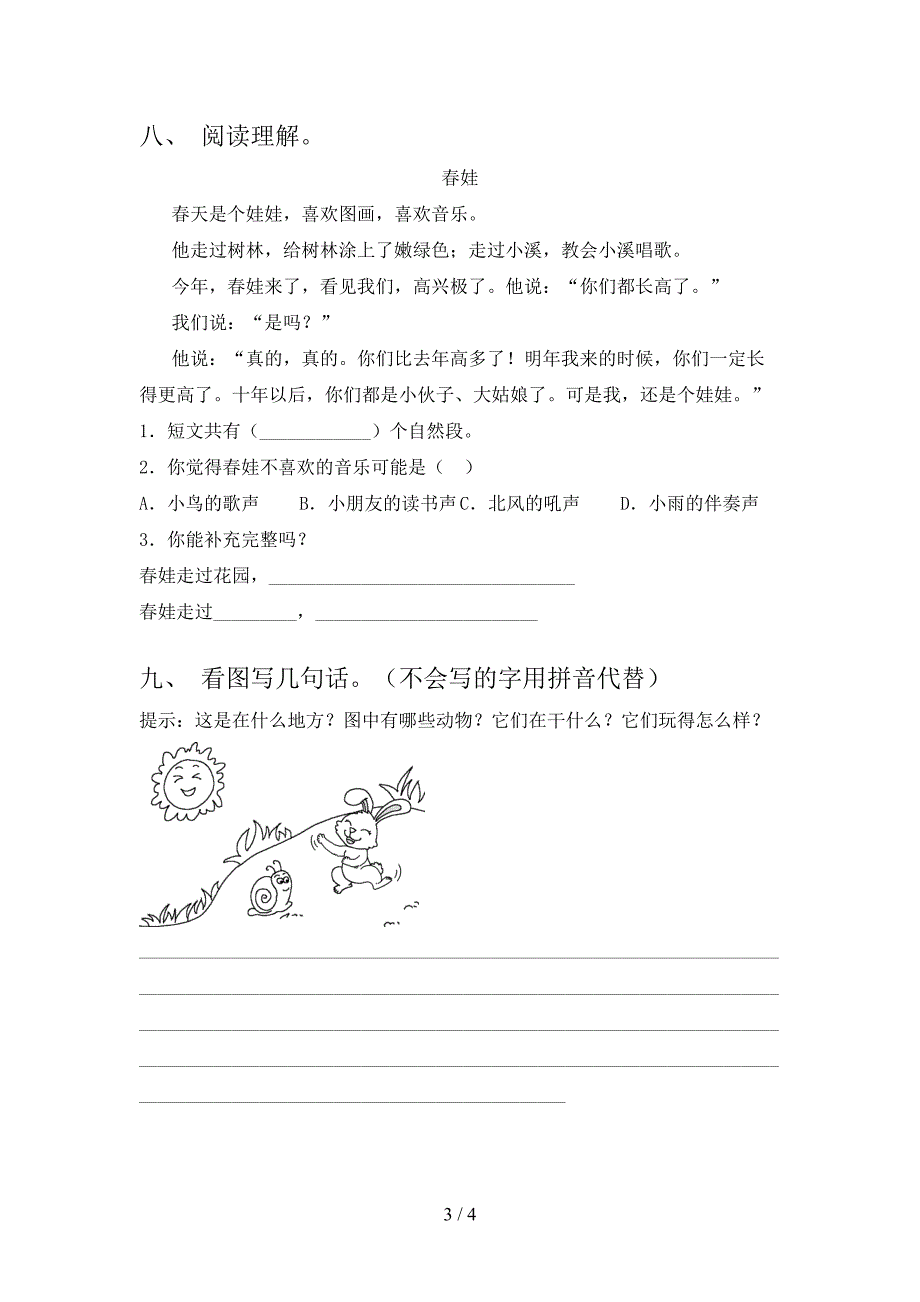 八、 阅读理解。
春娃
春天是个娃娃，喜欢图画，喜欢音乐。
他走过树林，给树林涂上了嫩绿色；走过小溪，教会小溪唱歌。
今年，春娃来了，看见我们，高兴极了。他说：“你们都长高了。”
我们说：“是吗？”
他说：“真的，真的。你们比去年高多了！明年我来的时候，你们一定长
得更高了。十年以后，你们都是小伙子、大姑娘了。可是我，还是个娃娃。”
1．短文共有（____________）个自然段。
2．你觉得春娃不喜欢的音乐可能是（  ）
A．小鸟的歌声    B．小朋友的读书声 C．北风的吼声    D．小雨的伴奏声
3．你能补充完整吗？
春娃走过花园，_________________________________
春娃走过_________，________________________
九、 看图写几句话。（不会写的字用拼音代替）
提示：这是在什么地方？图中有哪些动物？它们在干什么？它们玩得怎么样？
3 / 4